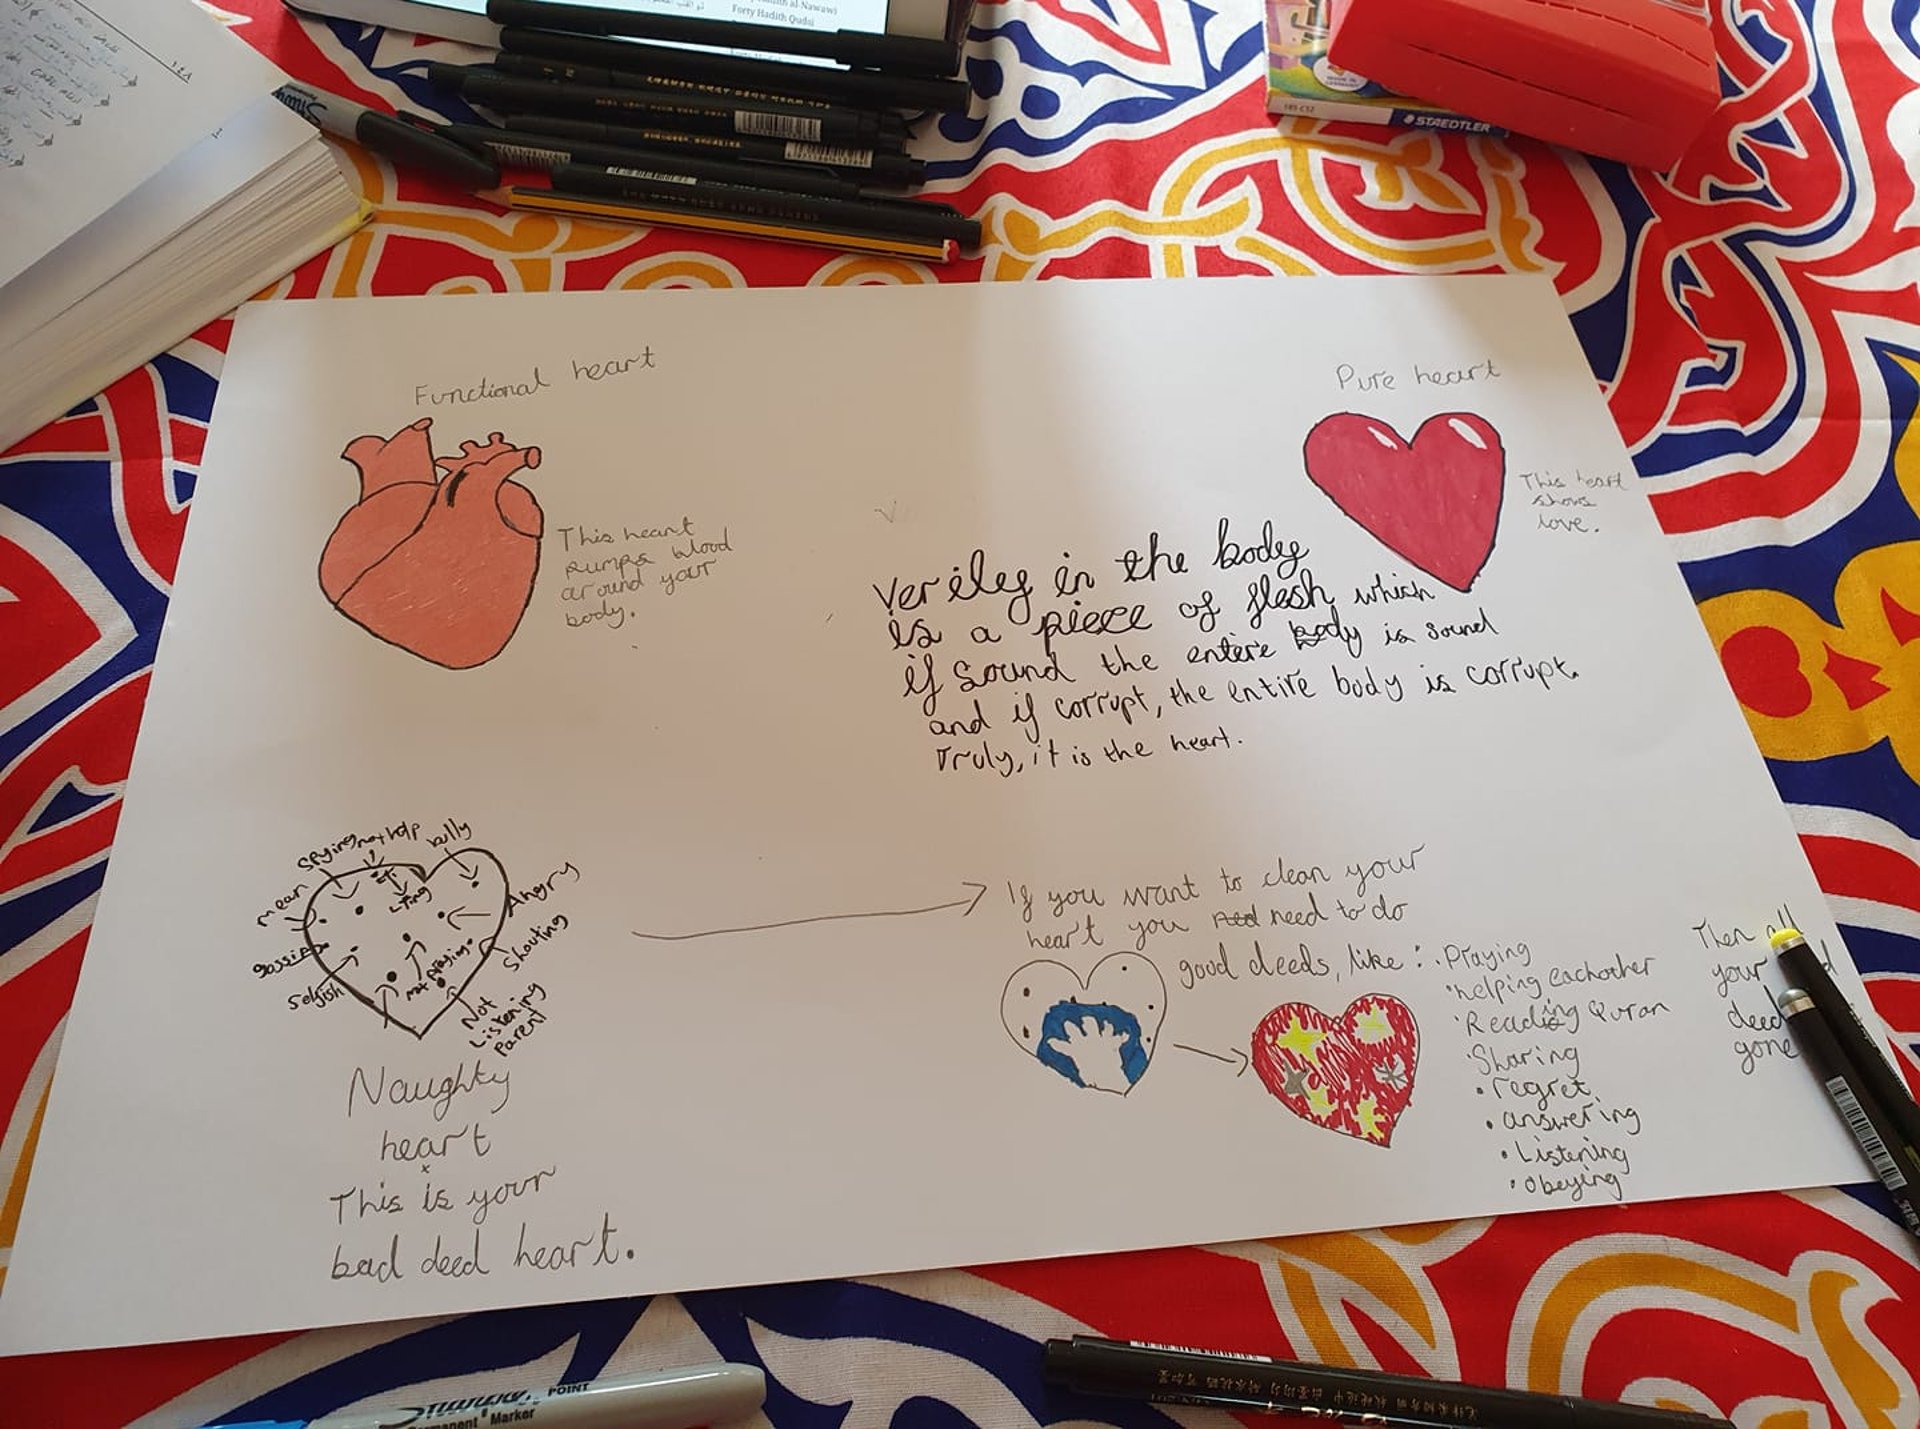 al-Nawawi
Forty Hadith Qudsi
١٤٨
STAEDTLER
Functional heart
This heart
pumps blood
around your
body.
Pure heart
This heart
shows
love.
Verily in the body
is a piece of flesh which
if sound the entire body is sound
and if corrupt, the entire body is corrupt.
Truly, it is the heart.
spying
not help
bully
mean
Lying
Angry
gossip
shouting
selfish
not praying
Not
Listening
Parent
Naughty
heart
This is your
bad deed heart.
If you want to clean your
heart you need to do
good deeds, like:
• Praying
• helping eachother
• Reading Quran
• Sharing
• regret
• answering
• Listening
• obeying
Then all
your
deed
gone
POINT
Permanent Marker